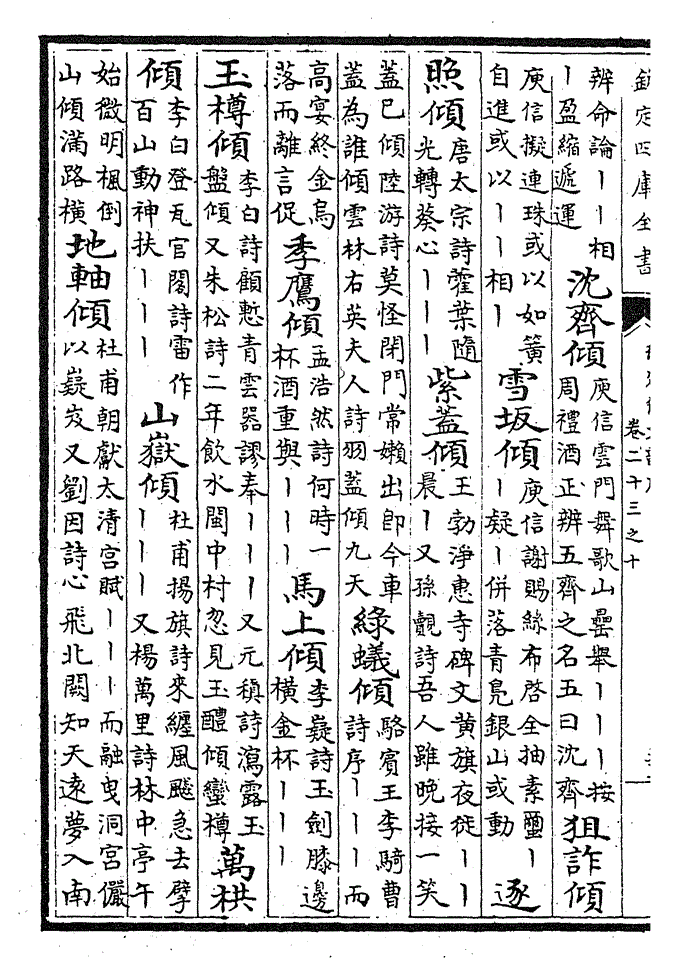 欽定四庫全書
卷二十三之十
辨命論丨丨相丨盈縮遞運 沈齊傾 庾信雲門舞歌山罍舉丨丨丨按周禮酒正辨五齊之名五曰沈齊 狙詐傾
庾信擬連珠或以如簧自進或以丨丨相丨 雪坂傾 庾信謝賜絲布啓全抽素璽丨丨疑丨併落青鳧銀山或動 逐
照傾 唐太宗詩藿葉隨光轉葵心丨丨丨 紫蓋傾 王勃淨惠寺碑文黄旗夜徙丨丨晨丨又孫覿詩吾人雖晚接一笑
蓋已傾陸游詩莫怪閉門常嬾出卽今車蓋為誰傾雲林右英夫人詩羽蓋傾九天 綠蟻傾 駱賓王李騎曹詩序丨丨丨而
高宴終金烏落而離言促 季鷹傾 孟浩然詩何時一杯酒重與丨丨丨 馬上傾 李嶷詩玉劍膝邊橫金杯丨丨丨
玉樽傾 李白詩顧慙青雲器謬奉丨丨丨又元稹詩瀉露玉盤傾又朱松詩二年飲水閩中村忽見玉醴傾蠻樽 萬栱
傾 李白登瓦官閣詩雷作百山動神扶丨丨丨 山嶽傾 杜甫揚旗詩來纏風飈急去擘丨丨丨又楊萬里詩林中亭午
始微明楓倒山傾滿路橫 地軸傾 杜甫朝獻太清宮賦丨丨丨而融曳洞宮儼以嶷岌又劉因詩心飛北闕知天遠夢入南